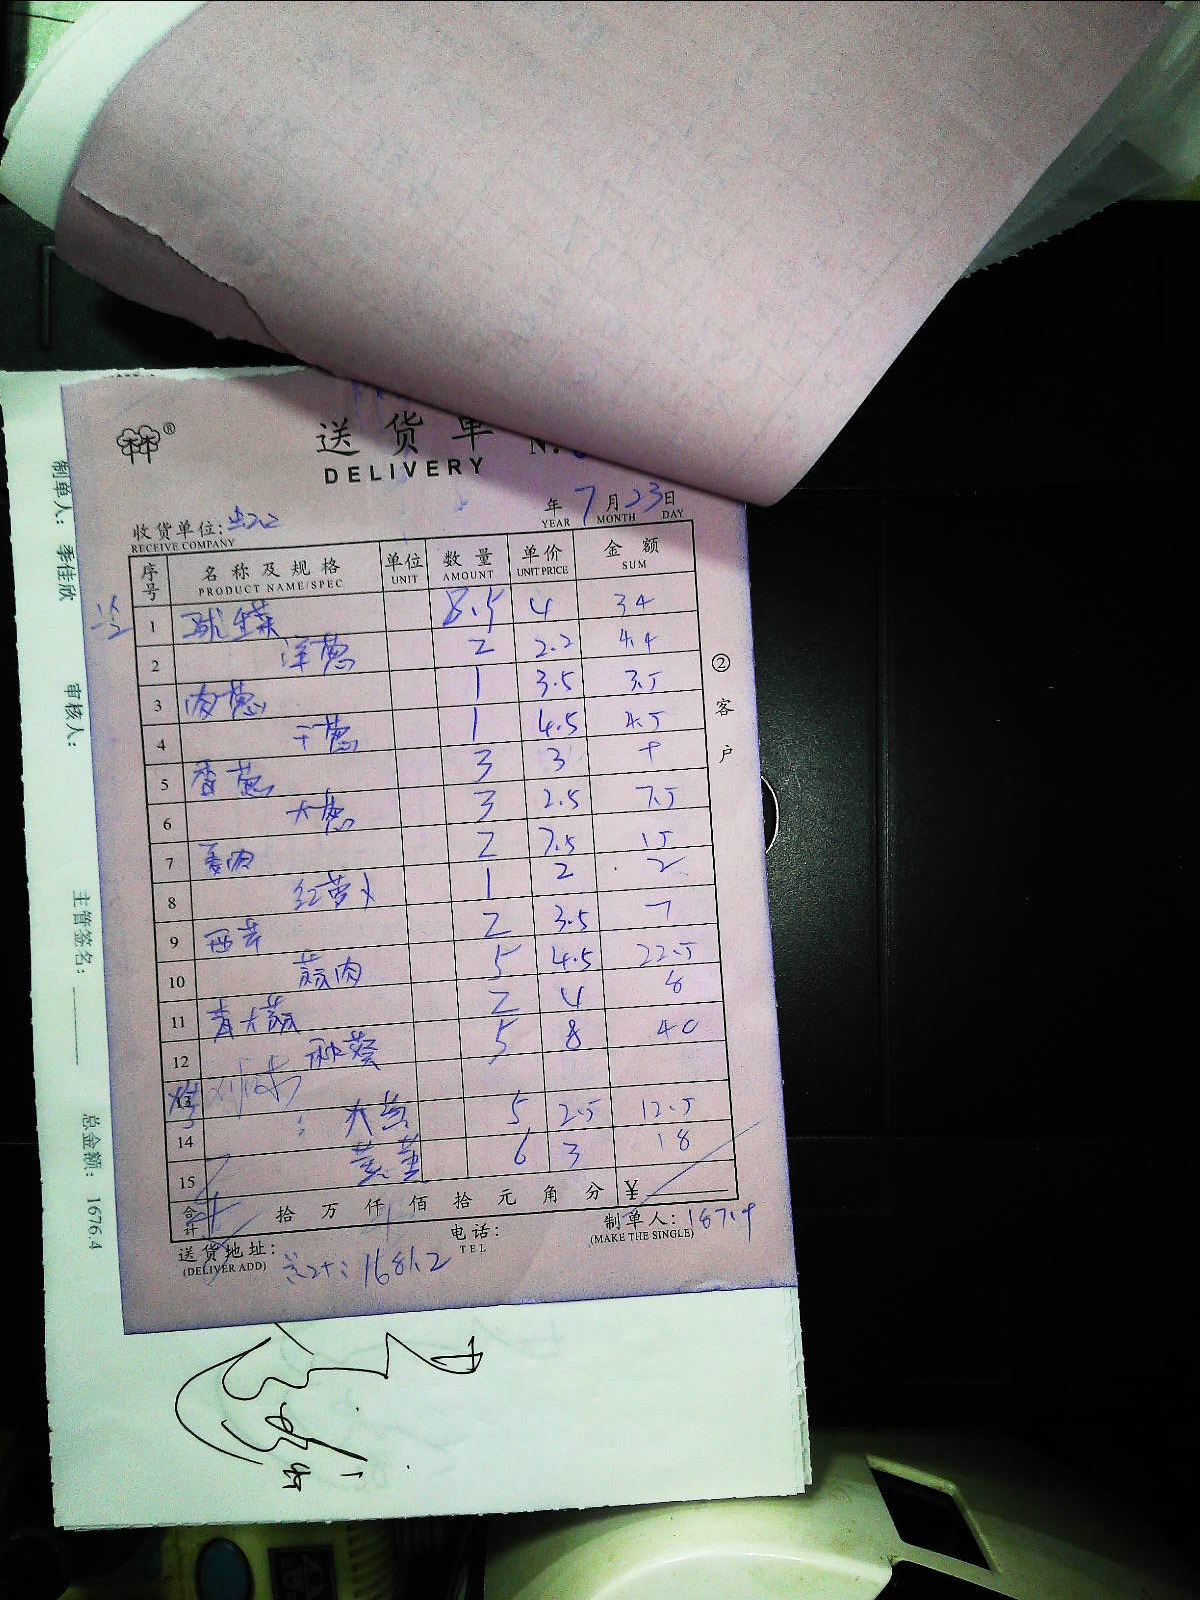 送货单 N.
DELIVERY
年 7 月 23 日
YEAR MONTH DAY
收货单位:
RECEIVE COMPANY
序号 名称及规格 单位 数量 单价 金额
PRODUCT NAME/SPEC UNIT AMOUNT UNIT PRICE SUM
1 球生菜 8.5 4 34
2 洋葱 2 2.2 4.4
3 肉葱 1 3.5 3.5
4 干葱 1 4.5 4.5
5 香葱 3 3
6 大葱 3 2.5 7.5
7 姜肉 2 7.5 15
8 红萝卜 1 2 2
9 西芹 2 3.5 7
10 蒜肉 5 4.5 22.5
11 青大蒜 2 4 8
12 秋葵 5 8 40
13
14 5 2.5 12.5
15 6 3 18
合计 拾 万 仟 佰 拾 元 角 分 ¥
送货地址: 电话: 制单人: 187.9
(DELIVER ADD) TEL (MAKE THE SINGLE)
总计: 1681.2
② 客户
制单人: 季佳欣
审核人:
主管签名:
总金额: 1676.4